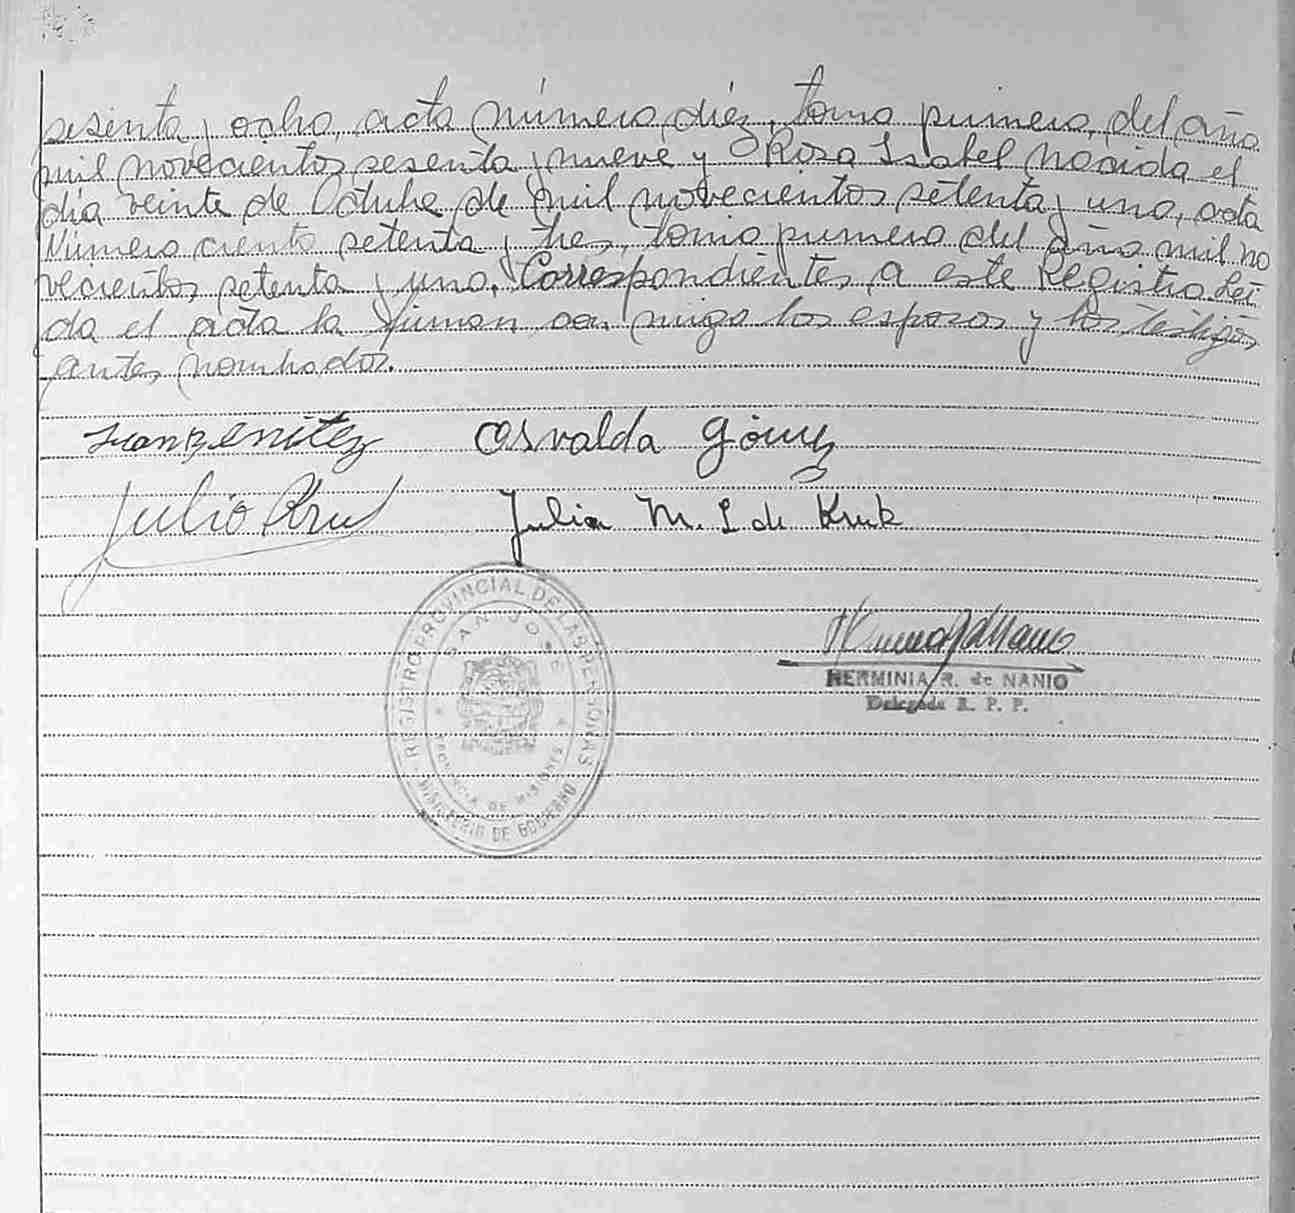 sesenta y ocho, acta número diez, tomo primero, del año
mil novecientos sesenta y nueve y Rosa Isabel nacida el
día veinte de Octubre de mil novecientos setenta y uno, acta
Número ciento setenta y tres, tomo primero del año mil no
vecientos setenta y uno. Correspondientes a este Registro. Leí
da el acta la firman con migo los esposos y los testigos
antes nombrados.
Juan Benitez Osvalda Gómez
Julio Kruk Julia M. L de Kruk
REGISTRO PROVINCIAL DE LAS PERSONAS
SAN JOSE
PROVINCIA DE MISIONES
MINISTERIO DE GOBIERNO
HERMINIA R. de NANIO
Delegada R. P. P.